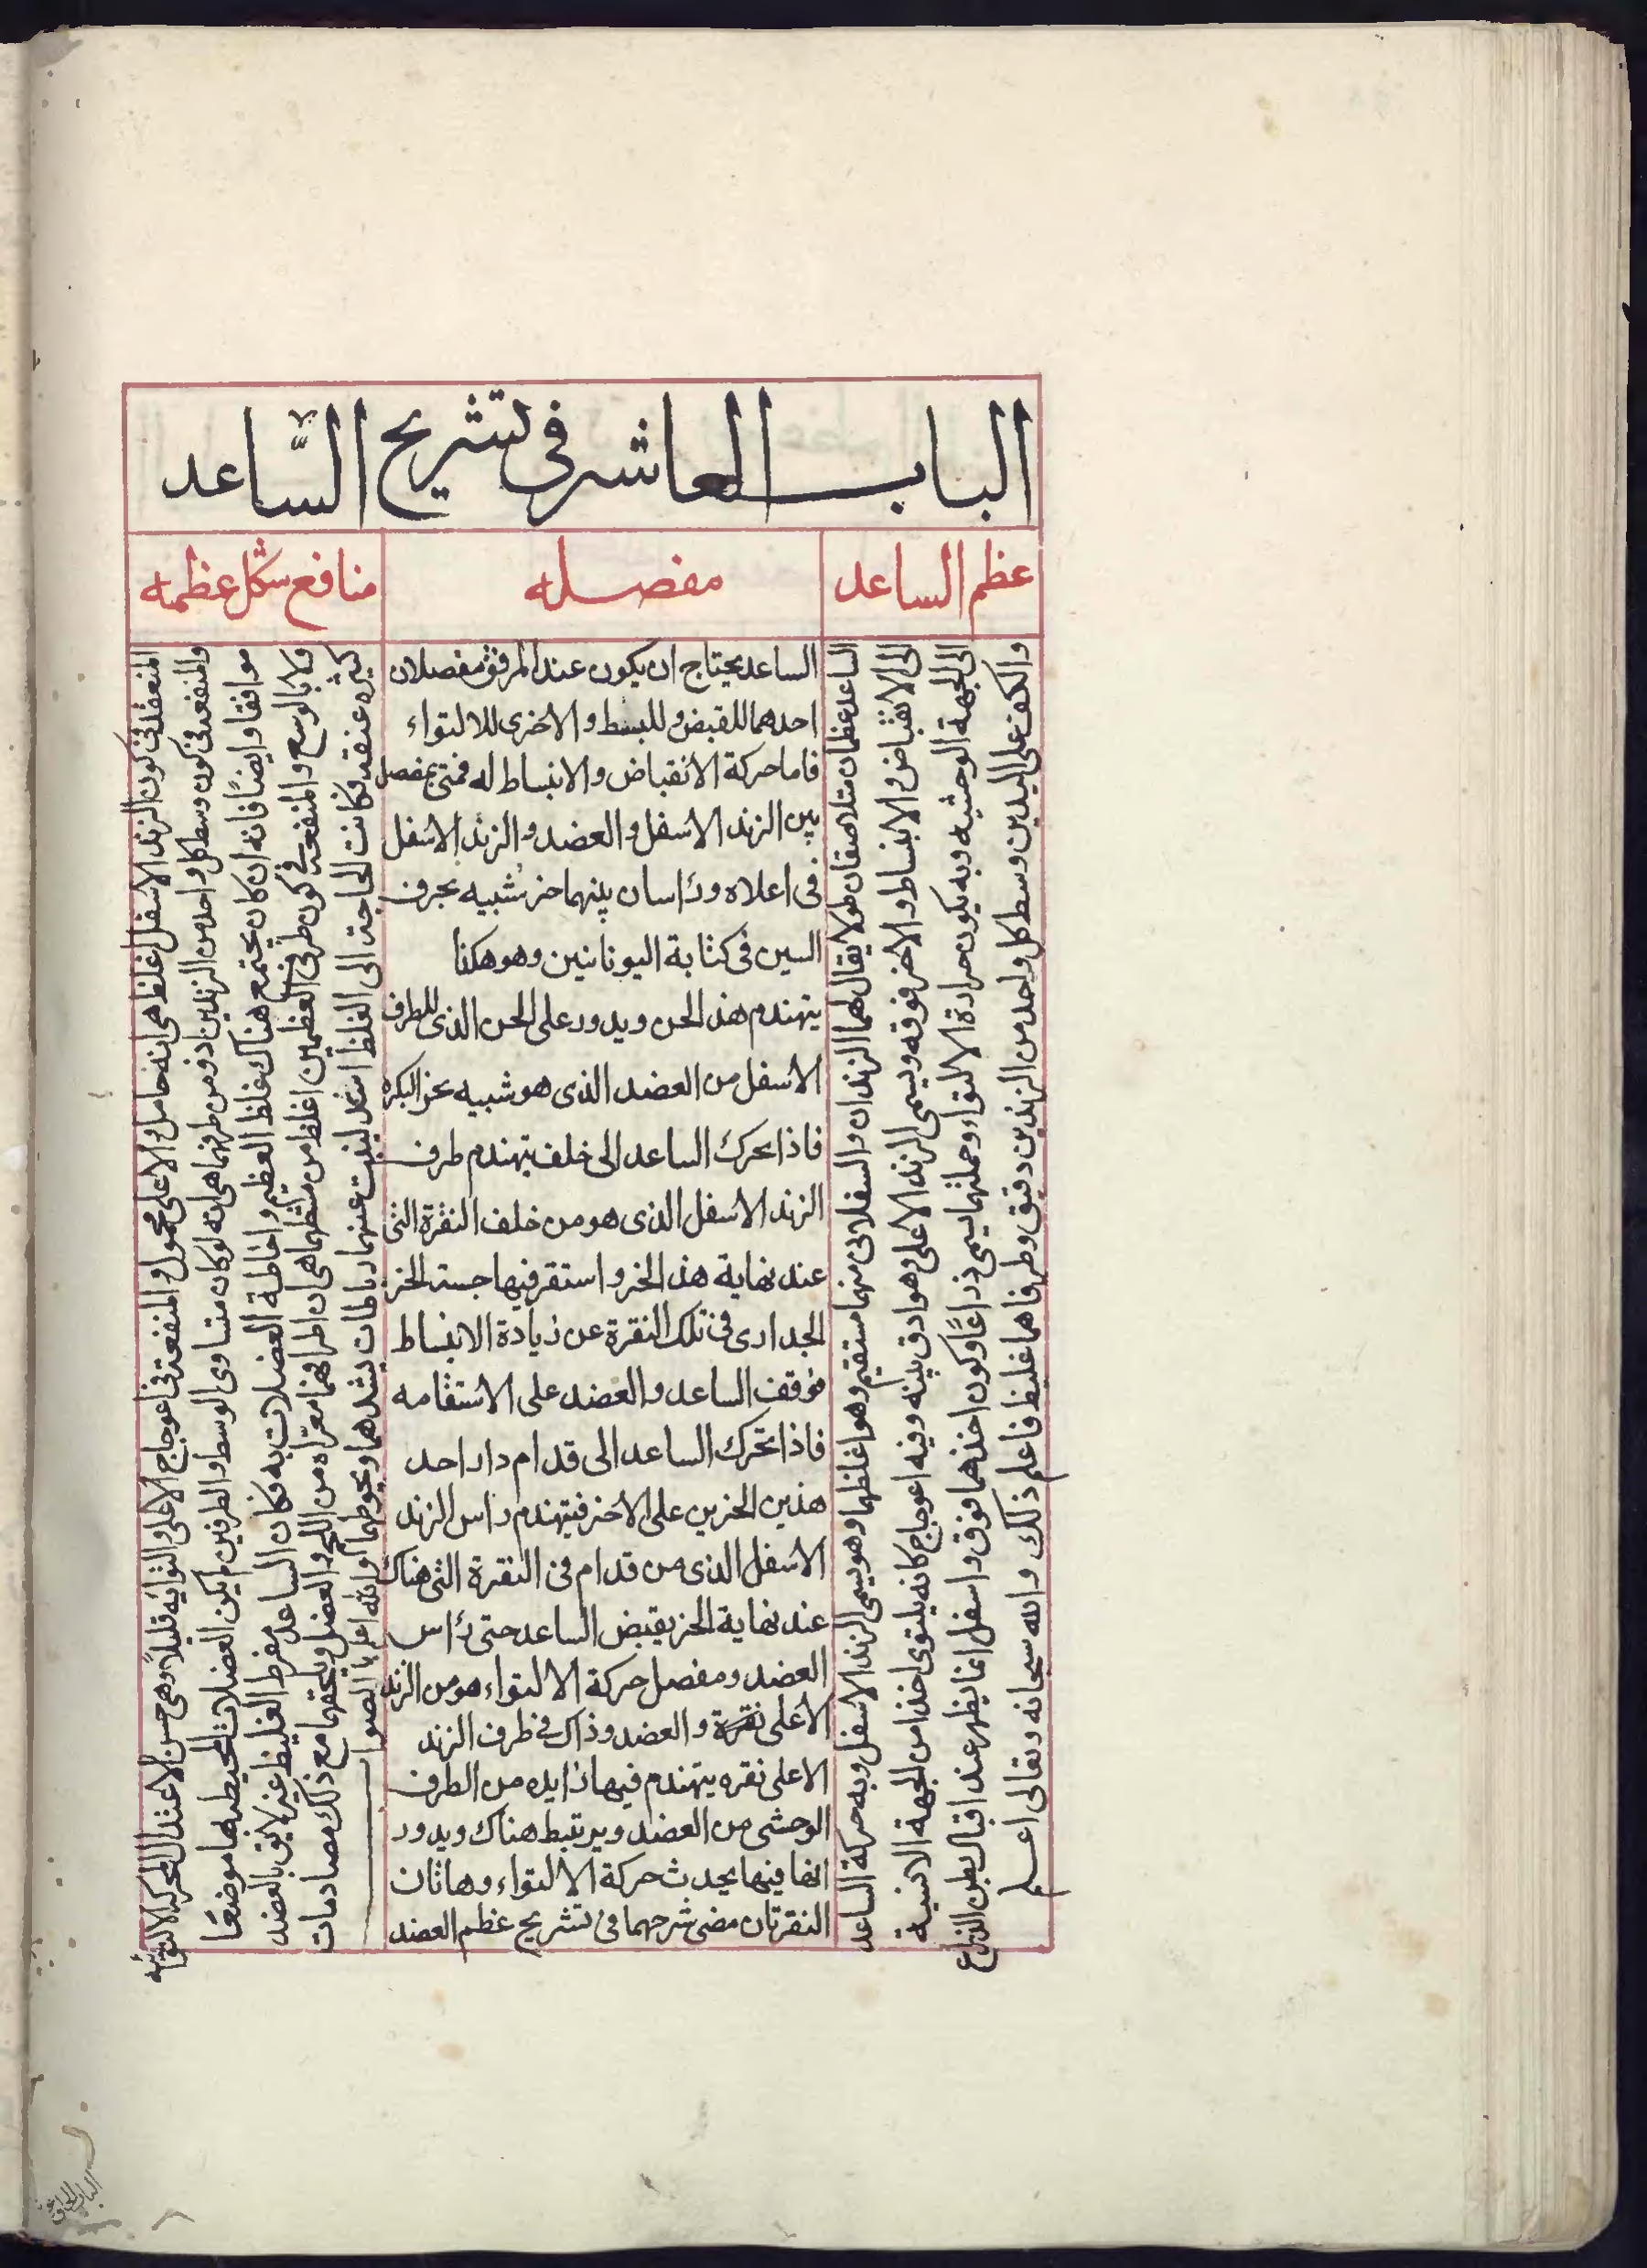 الباب العاشر في تشريح الساعد
عظم الساعد
مفصله
منافع شكل عظمه
الساعد عظمان متلاصقان طولا يقال لهما الزندان والسفلاني منهما مستقيم وهو اغلظهما وهو يسمى الزند الاسفل وبه حركة الساعد
الى الانقباض والانبساط والاخر فوقه ويسمى الزند الاعلى وهو ادق بينه وفيه اعوجاج كانه يلتوى اخذا من الجهة الانسية
الى الجهة الوحشيه وبه يكون حرادة الالتواء وجملتهما يسمى ذراعًا وكون اخذهما فوق واسفل انما يظهر عند اقبال بطن الذراع
والكف على اليدين وسط كل واحد من الزندين دقيق وطرفاهما غليظ فاعلم ذلك والله سبحانه وتعالى اعلم
الساعد يحتاج ان يكون عند المرفق مفصلان
احدهما للقبض وللبسط والاخرى للالتواء
فاما حركة الانقباض والانبساط له فمتى بمفصل
بين الزند الاسفل والعضد والزند الاسفل
فى اعلاه وراسان بينهما حز شبيه بحرف
السين فى كتابة اليونانيين وهو هكذا
يتهندم هذ الحز ويدور على الحز الذى للطرف
الاسفل من العضد الذى هو شبيه بحز البكره
فاذا تحرك الساعد الى خلف يتهندم طرف
الزند الاسفل الذى هو من خلف النقرة التى
عند نهاية هذ الحز واستقر فيها جسته الحز
الجدارى فى تلك النقرة عن زيادة الانبساط
فوقف الساعد والعضد على الاستقامه
فاذا تحرك الساعد الى قدام دار احد
هذين الحزين على الاخر فيتهندم راس الزند
الاسفل الذى من قدام فى النقرة التى هناك
عند نهاية الحز يقبض الساعد حتى راس
العضد ومفصل حركة الالتواء هو من الزند
الاعلى نقرة والعضد وذاك فى طرف الزند
الاعلى نقره يتهندم فيها زايده من الطرف
الوحشى من العضد ويرتبط هناك ويدور
انها فيها يحدث حركة الالتواء وهاتان
النقرتان مضى شرحهما فى تشريح عظم العضد
المنفعة فى كون الزند الاسفل اغلظ هى انه حامل والاعلى محمول والمنفعة فى اعوجاج الاعلى والتوائه قليلاً وهى حسن الاعتدال للحركة الالتوائيه
والمنفعة فى كون وسط كل واحد من الزندين ادق من طرفيهما هى انه لو كان متساوى الوسط والطرفين لم يكن العضلات المحيطه لها موضعًا
موافقا وايضًا فانه ان كان يجتمع هناك غلظ العظم واحاطة العضلات به فكان الساعد مفرط الغليظ غير لايق بالعضد
ولا بالوسع والمنفعة فى كون طرفى العظمين اغلظ من وسطهما هى ان اطرافهما معرّاه من اللحم والعضل ويلحقهما مع ذلك مصادمات
كثيره عنقه فكانت الحاجة الى الغلظ اشد لينبت عنهما رباطات يشدهما ويحوطهما والله اعلم بالصواب